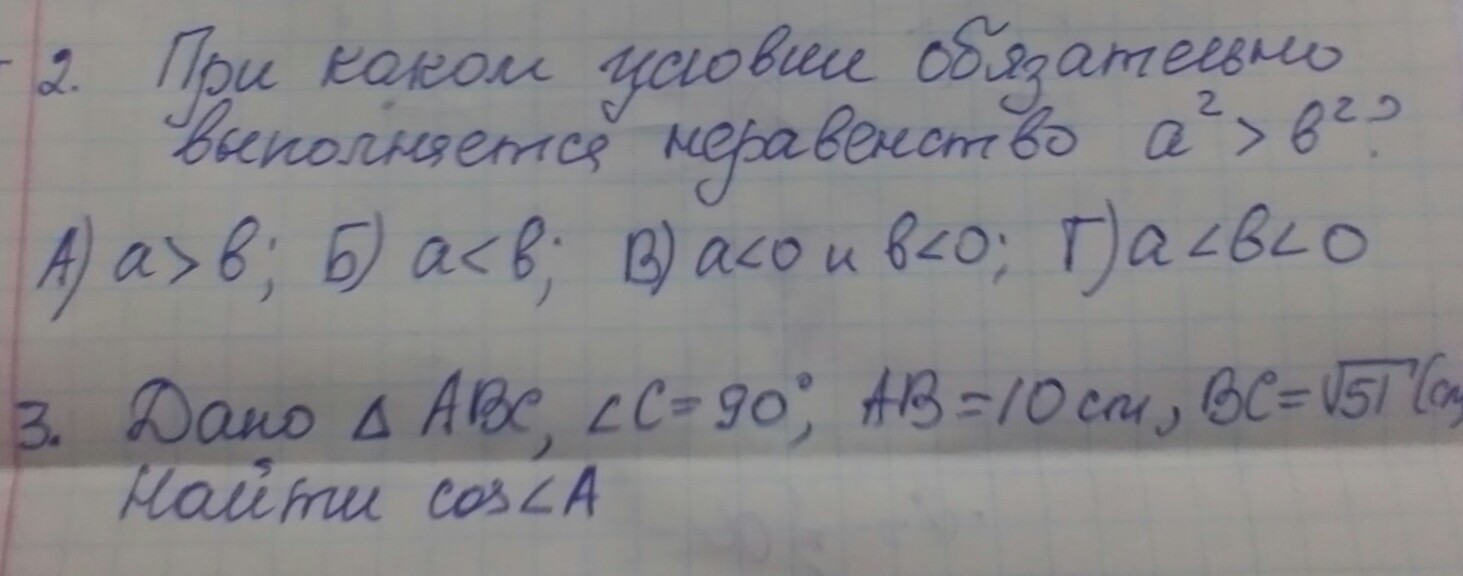 2. При каком условии обязательно
выполняется неравенство a² > b²?
А) a > b; Б) a < b; В) a<0 и b<0; Г) a < b < 0
3. Дано Δ ABC, ∠C = 90°, AB = 10 см, BC = √51 (см
Найти cos∠A